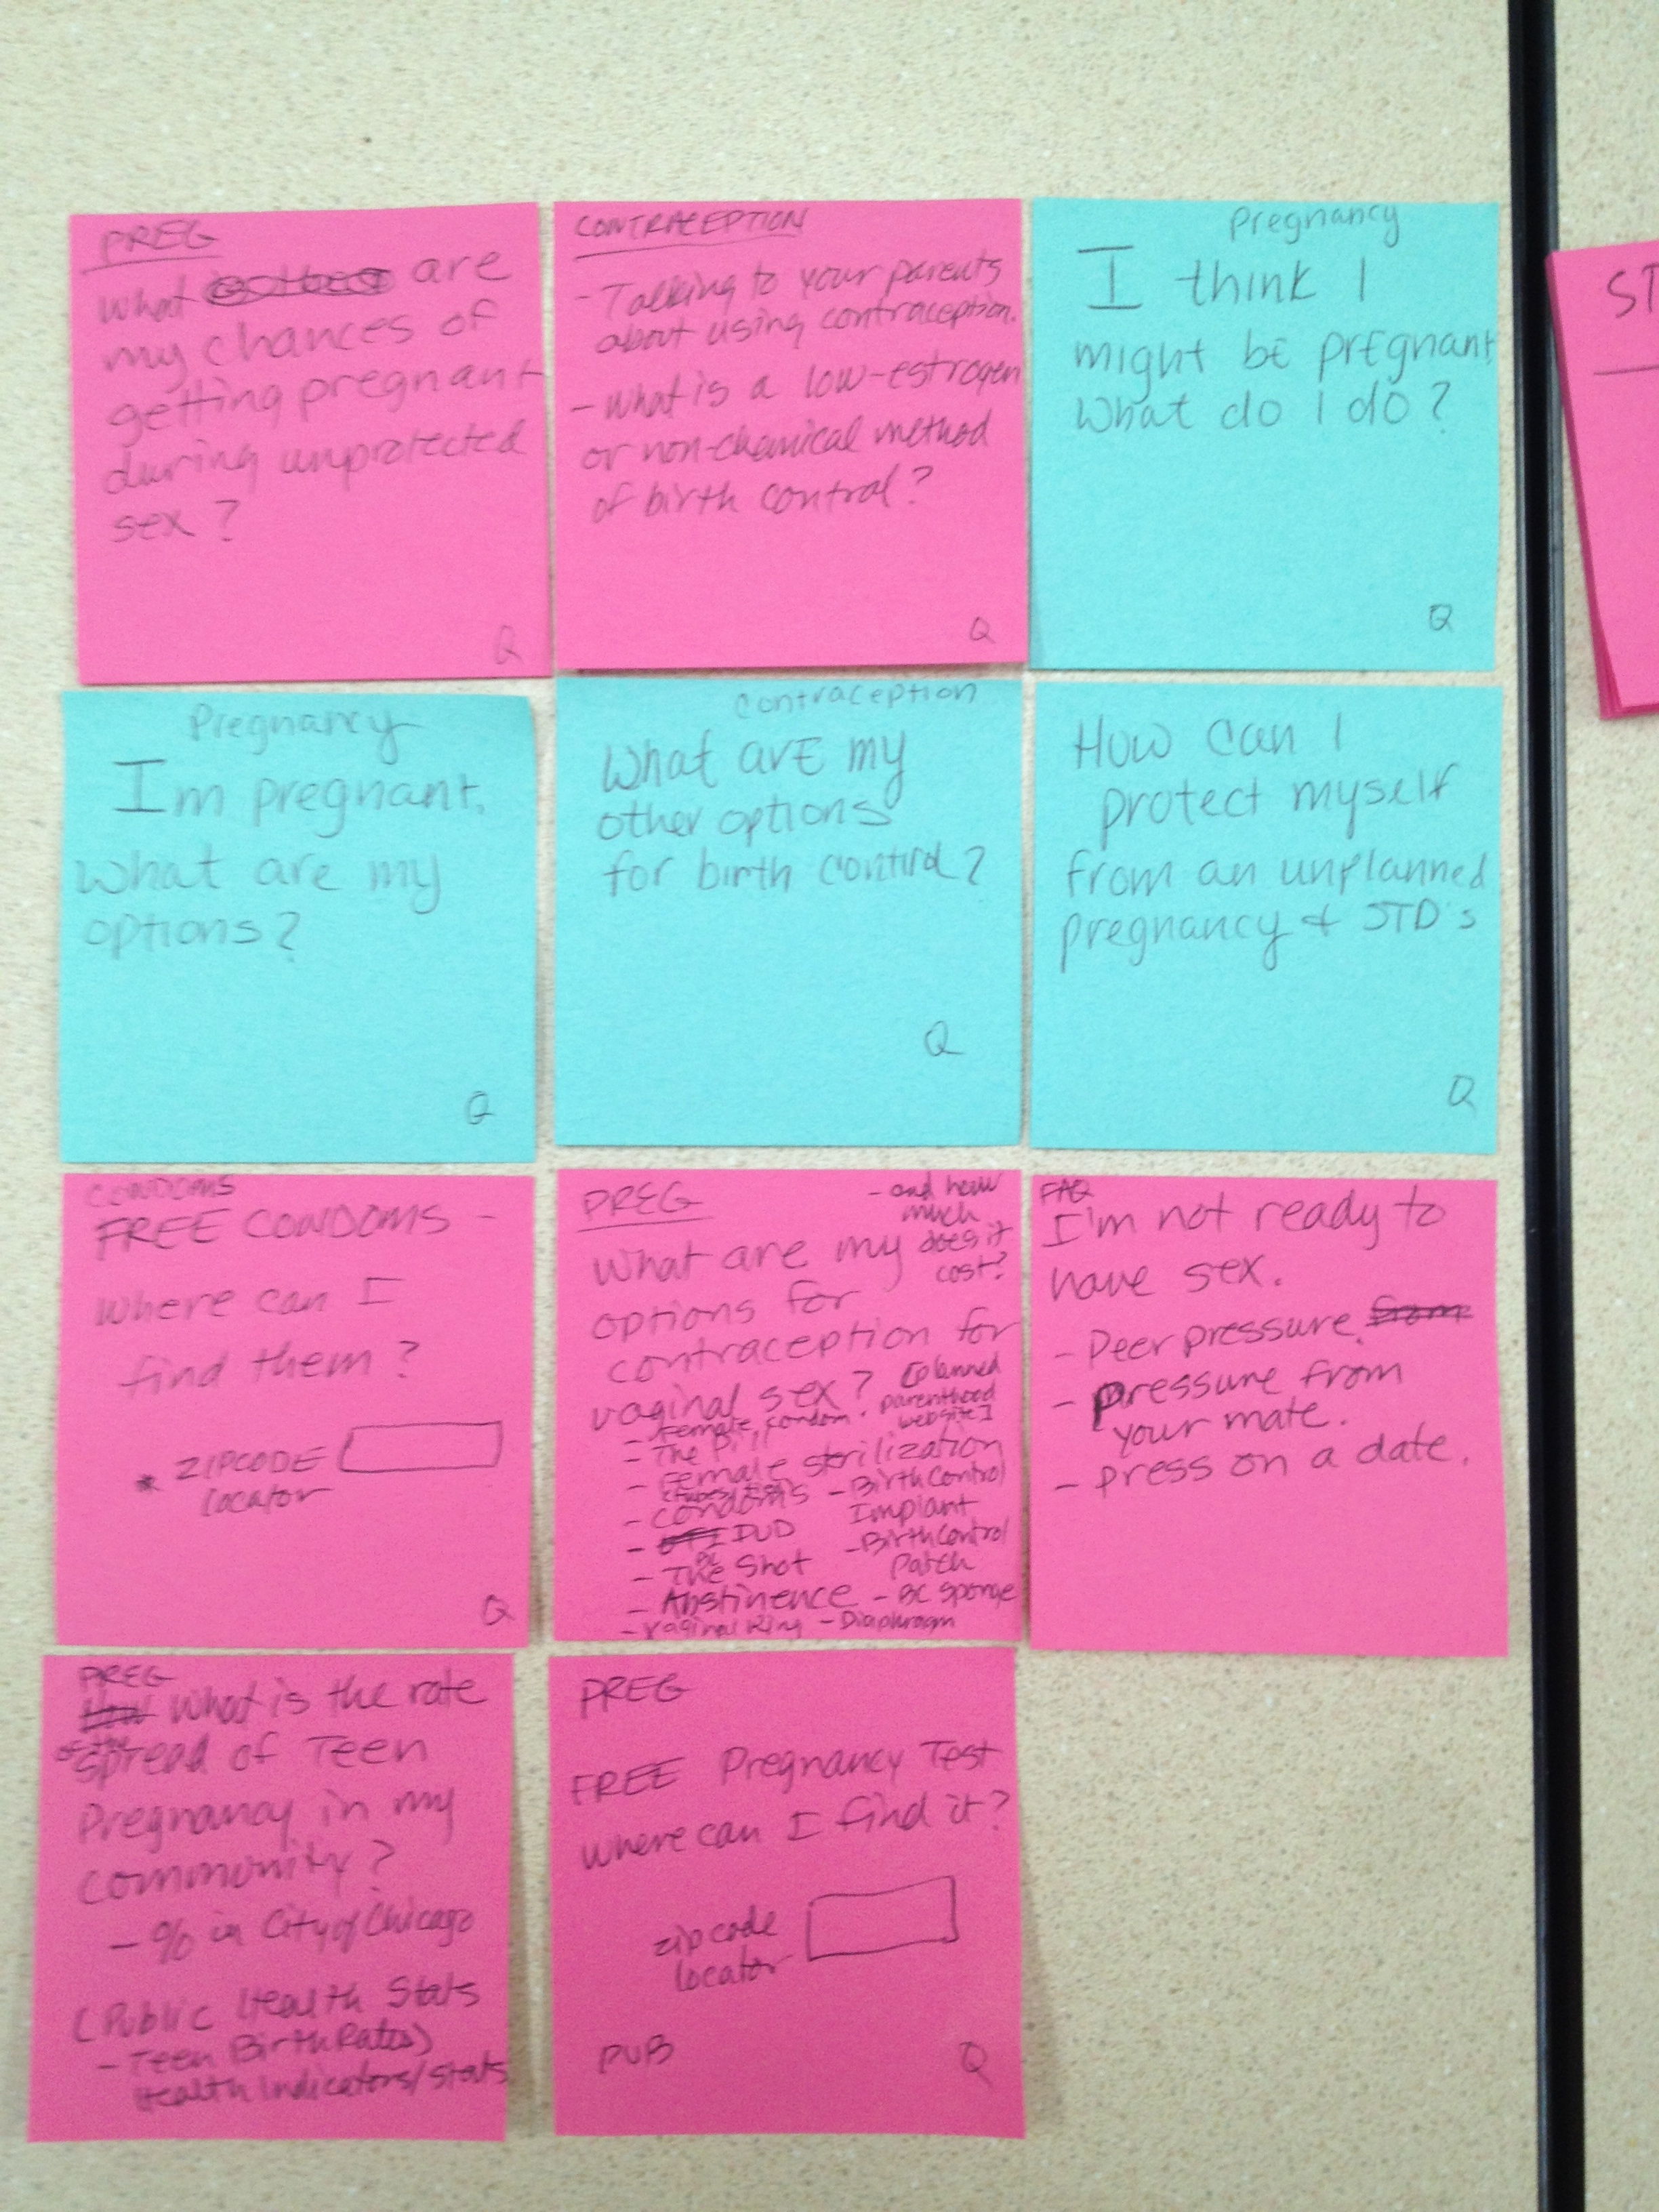 PREG
What are
my chances of
getting pregnant
during unprotected
sex?
Q
CONTRACEPTION
- Talking to your parents
about using contraception.
- What is a low-estrogen
or non-chemical method
of birth control?
Q
Pregnancy
I think I
might be pregnant
What do I do?
Q
Pregnancy
I'm pregnant.
What are my
options?
Q
Contraception
What are my
other options
for birth control?
Q
How can I
protect myself
from an unplanned
pregnancy & STD's
Q
CONDOMS
FREE CONDOMS -
where can I
find them?
* ZIPCODE
locator
Q
PREG
- and how
much
does it
cost?
What are my
options for
contraception for
vaginal sex?
[planned
parenthood
website]
- Female condom
- The Pill
- Female sterilization
- Condoms
- IUD
- The BC Shot
- Abstinence
- Vaginal Ring
- Birth Control
Implant
- Birth Control
Patch
- BC Sponge
- Diaphragm
FAQ
I'm not ready to
have sex.
- Peer pressure. from
- pressure from
your mate.
- press on a date.
PREG
How What is the rate
of the spread of Teen
Pregnancy in my
community?
- % in City of Chicago
(Public Health Stats
- Teen Birth Rates)
Health Indicators/stats
PREG
FREE Pregnancy Test
where can I find it?
zipcode
locator
PUB
Q
ST